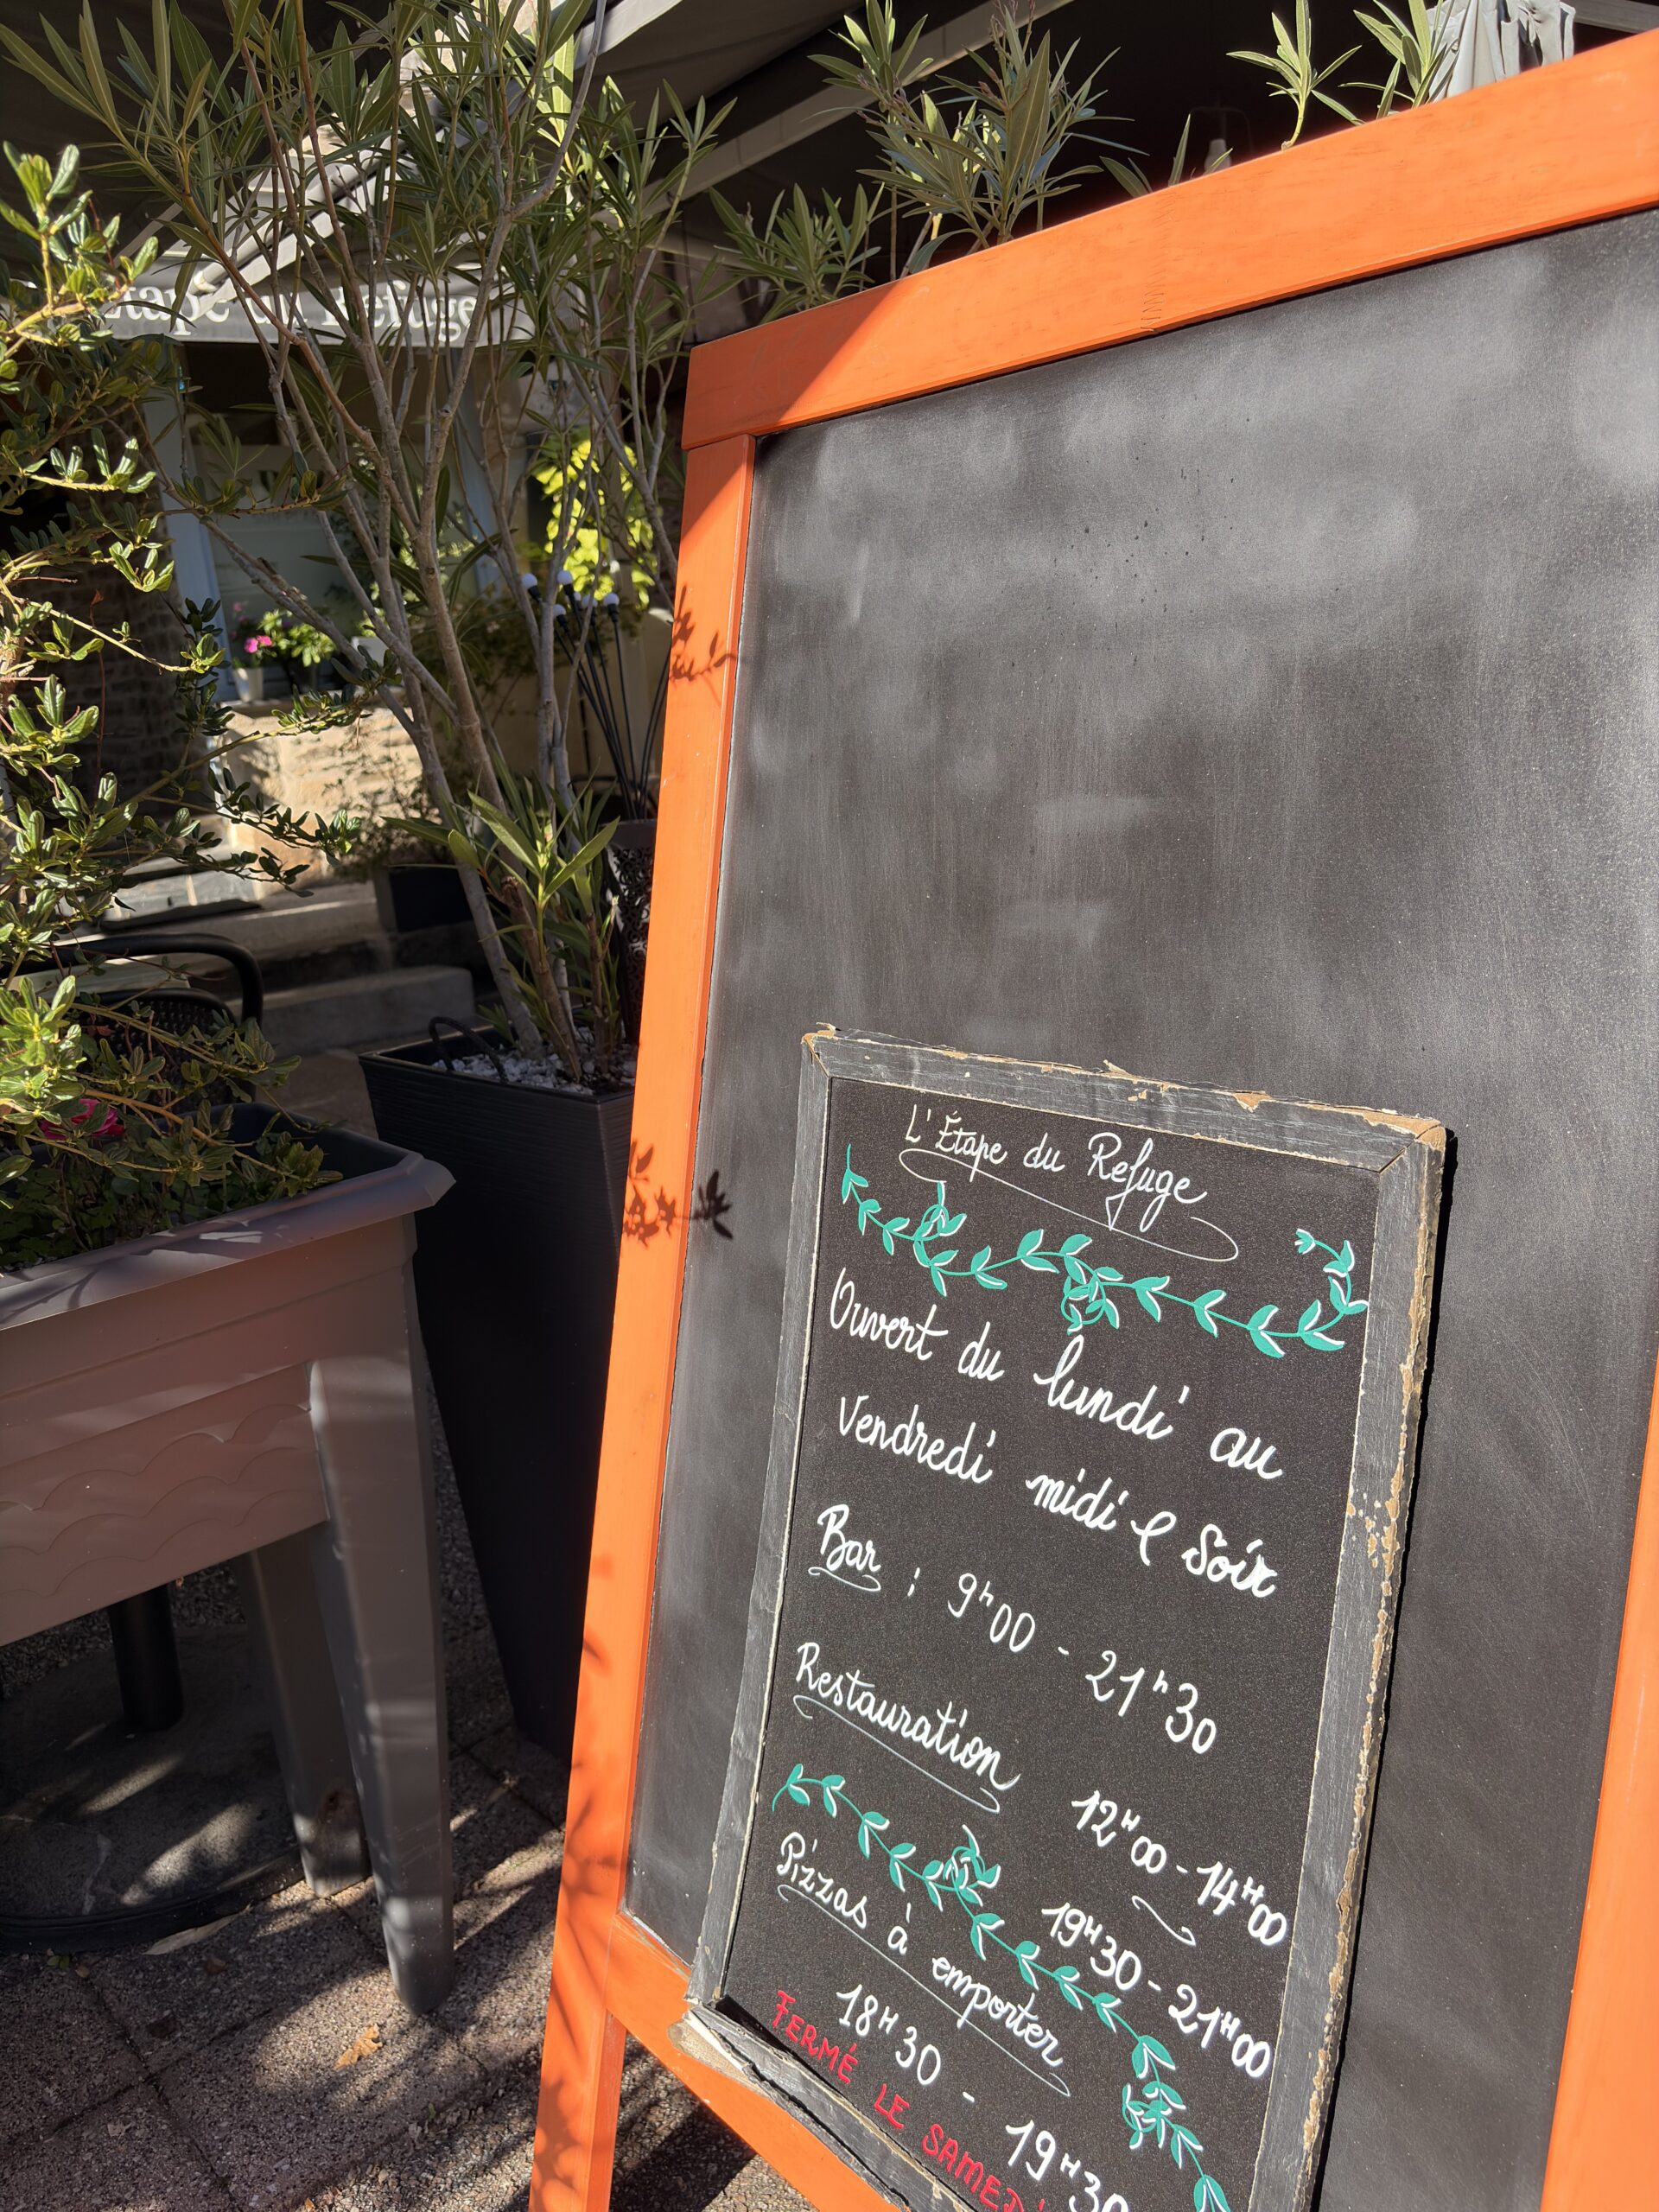 Étape du Refuge
L'Étape du Refuge
Ouvert du lundi au
Vendredi midi & Soir
Bar : 9h00 - 21h30
Restauration
12H00 - 14H00
19H30 - 21H00
Pizzas à emporter
18H30 - 19H30
FERMÉ LE SAMEDI